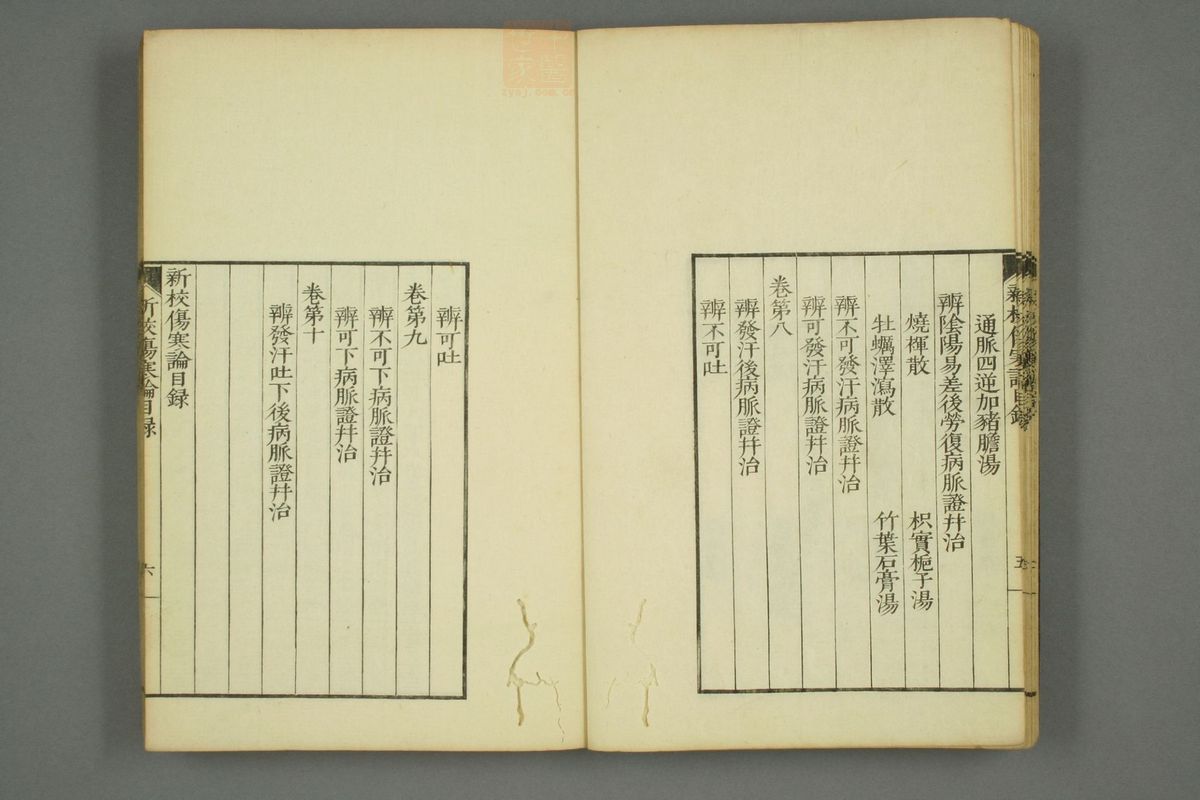 通脈四逆加豬膽湯
辨陰陽易差後勞復病脈證幷治
燒裈散 枳實梔子湯
牡蠣澤瀉散 竹葉石膏湯
辨不可發汗病脈證幷治
辨可發汗病脈證幷治
卷第八
辨發汗後病脈證幷治
辨不可吐
辨可吐
卷第九
辨不可下病脈證幷治
辨可下病脈證幷治
卷第十
辨發汗吐下後病脈證幷治
新校傷寒論目録
新校傷寒論目録
六